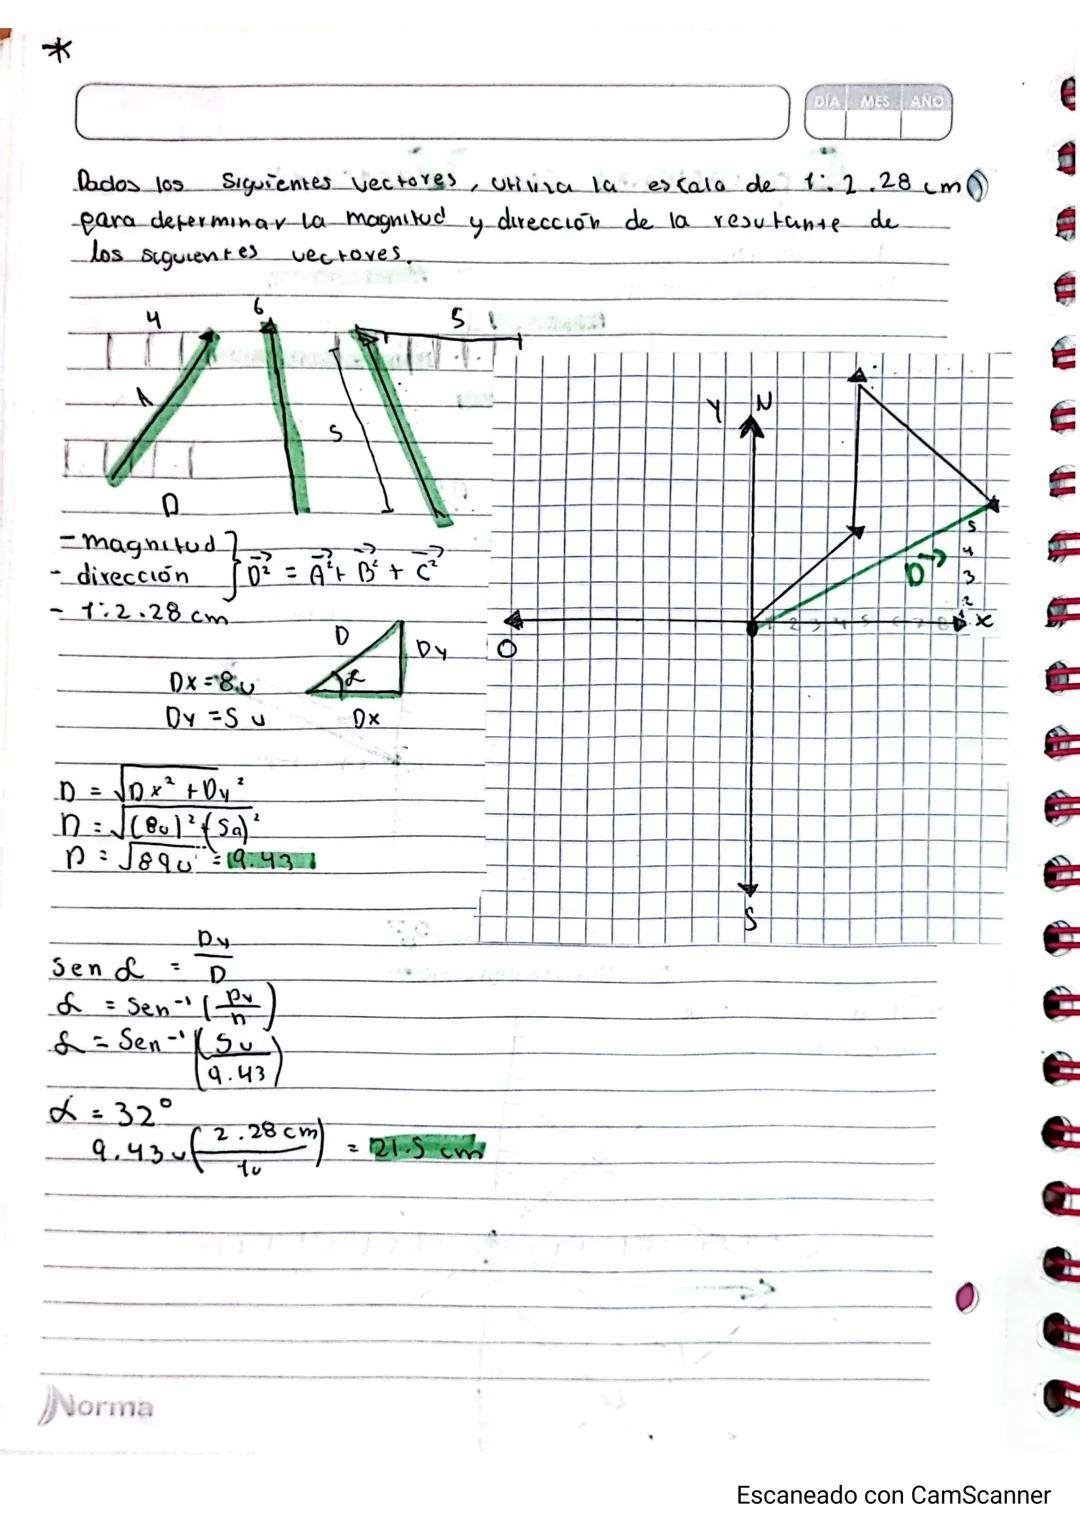 *
DÍA MES AÑO
Dados los Siguientes Vectores, utiliza la escala de 1:2.28 cm
para determinar la magnitud y dirección de la resultante de
los siguientes vectores.
4 6 5
A S
D
- magnitud
- dirección } D² = A² + B² + C²
- 1:2.28 cm
D Dy
α
Dx = 8u
Dy = 5u Dx
Y N
5
4
D 3
2
1 2 3 4 5 6 7 8 x
O
S
D = √Dx² + Dy²
D = √(8u)² + (5u)²
D = √89u = 9.43
Sen α = Dy/D
α = Sen⁻¹ (Dy/D)
α = Sen⁻¹ (5u/9.43)
α = 32°
9.43u (2.28 cm/1u) = 21.5 cm
Norma
Escaneado con CamScanner